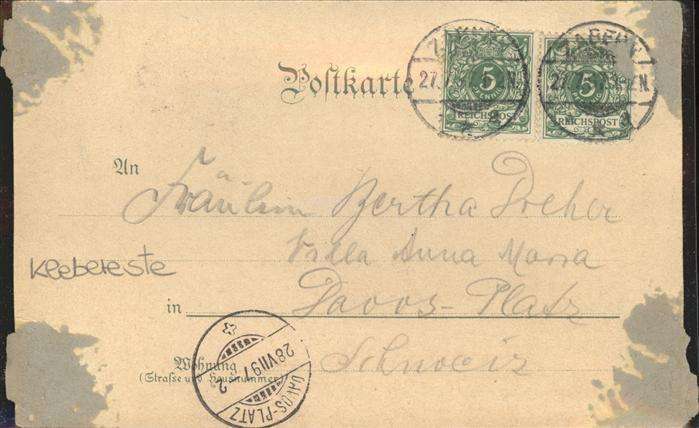 Postkarte
ZABERN
27.
5 5
REICHSPOST REICHSPOST
An
Fräulein Bertha Dreher
Villa Anna Maria
Klebereste
in Davos-Platz
Schweiz
Wohnung
(Straße und Hausnummer)
28 VII 97
DAVOS-PLATZ